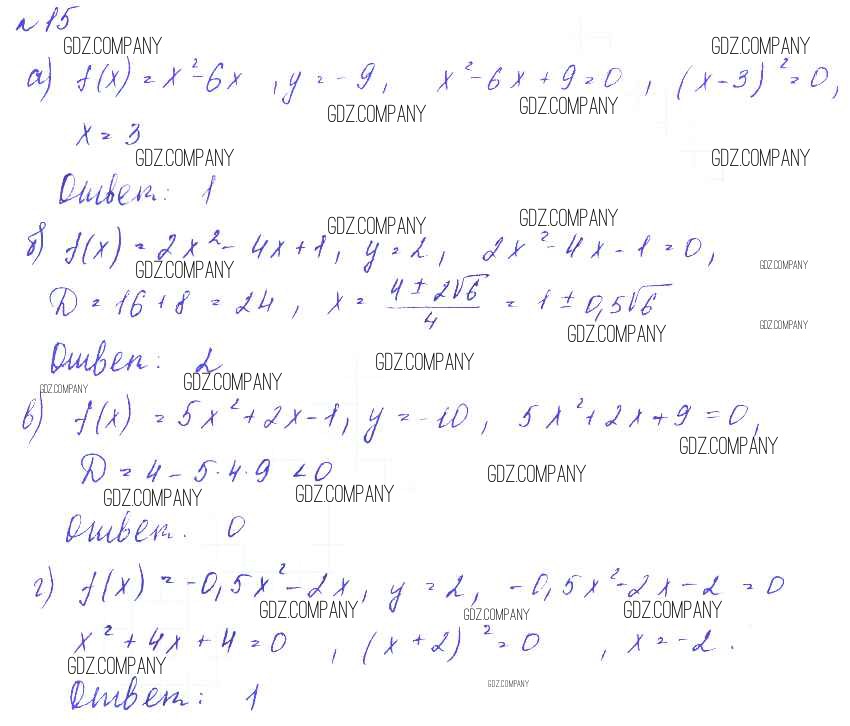 №15
GDZ.COMPANY GDZ.COMPANY
а) f(x) = x²-6x , y = -9, x²-6x+9=0 , (x-3)²=0,
GDZ.COMPANY GDZ.COMPANY
x = 3
GDZ.COMPANY GDZ.COMPANY
Ответ: 1
GDZ.COMPANY GDZ.COMPANY
б) f(x) = 2x²-4x+1, y = 2, 2x²-4x-1=0,
GDZ.COMPANY GDZ.COMPANY
D = 16+8 = 24 , x = (4±2√6)/4 = 1±0,5√6
GDZ.COMPANY GDZ.COMPANY
Ответ: 2
GDZ.COMPANY GDZ.COMPANY GDZ.COMPANY
в) f(x) = 5x²+2x-1, y = -10, 5x²+2x+9=0,
GDZ.COMPANY
D = 4-5·4·9 <0
GDZ.COMPANY GDZ.COMPANY GDZ.COMPANY
Ответ. 0
г) f(x) = -0,5x²-2x, y = 2, -0,5x²-2x-2 = 0
GDZ.COMPANY GDZ.COMPANY GDZ.COMPANY
x²+4x+4=0 , (x+2)²=0 , x = -2.
GDZ.COMPANY GDZ.COMPANY
Ответ: 1